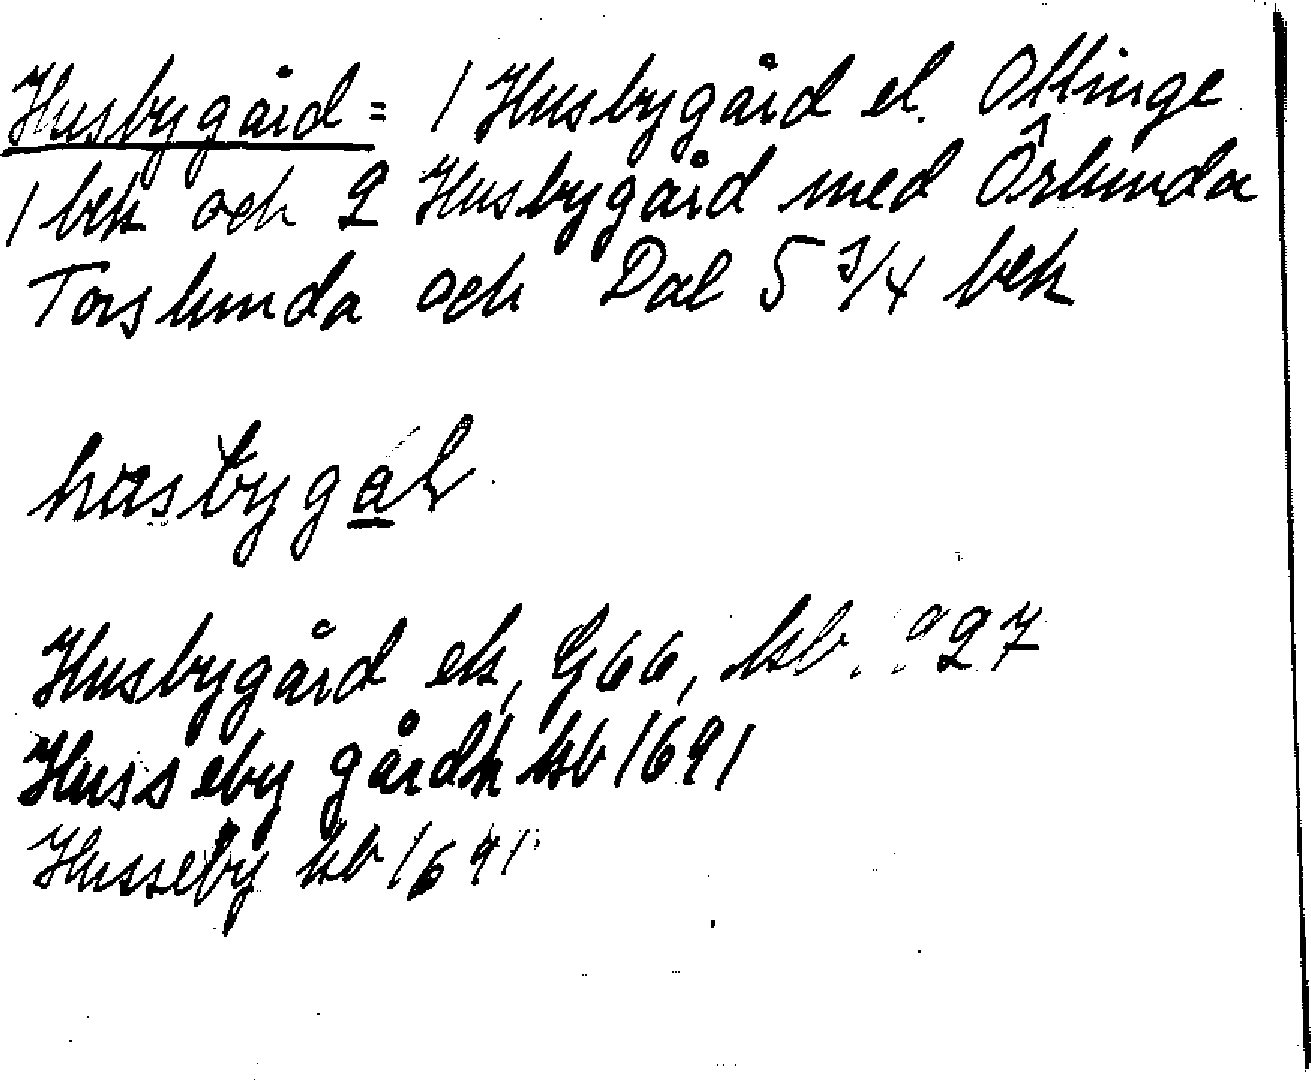 Husbygård = 1 Husbygård el. Ottinge
1 bek och 2 Husbygård med Örlunda
Torslunda och Dal 5 3/4 bek
husbygål
Husbygård ek, G66, kb. 27
Husseby gårdh kb 1691
Husseby kb 1691